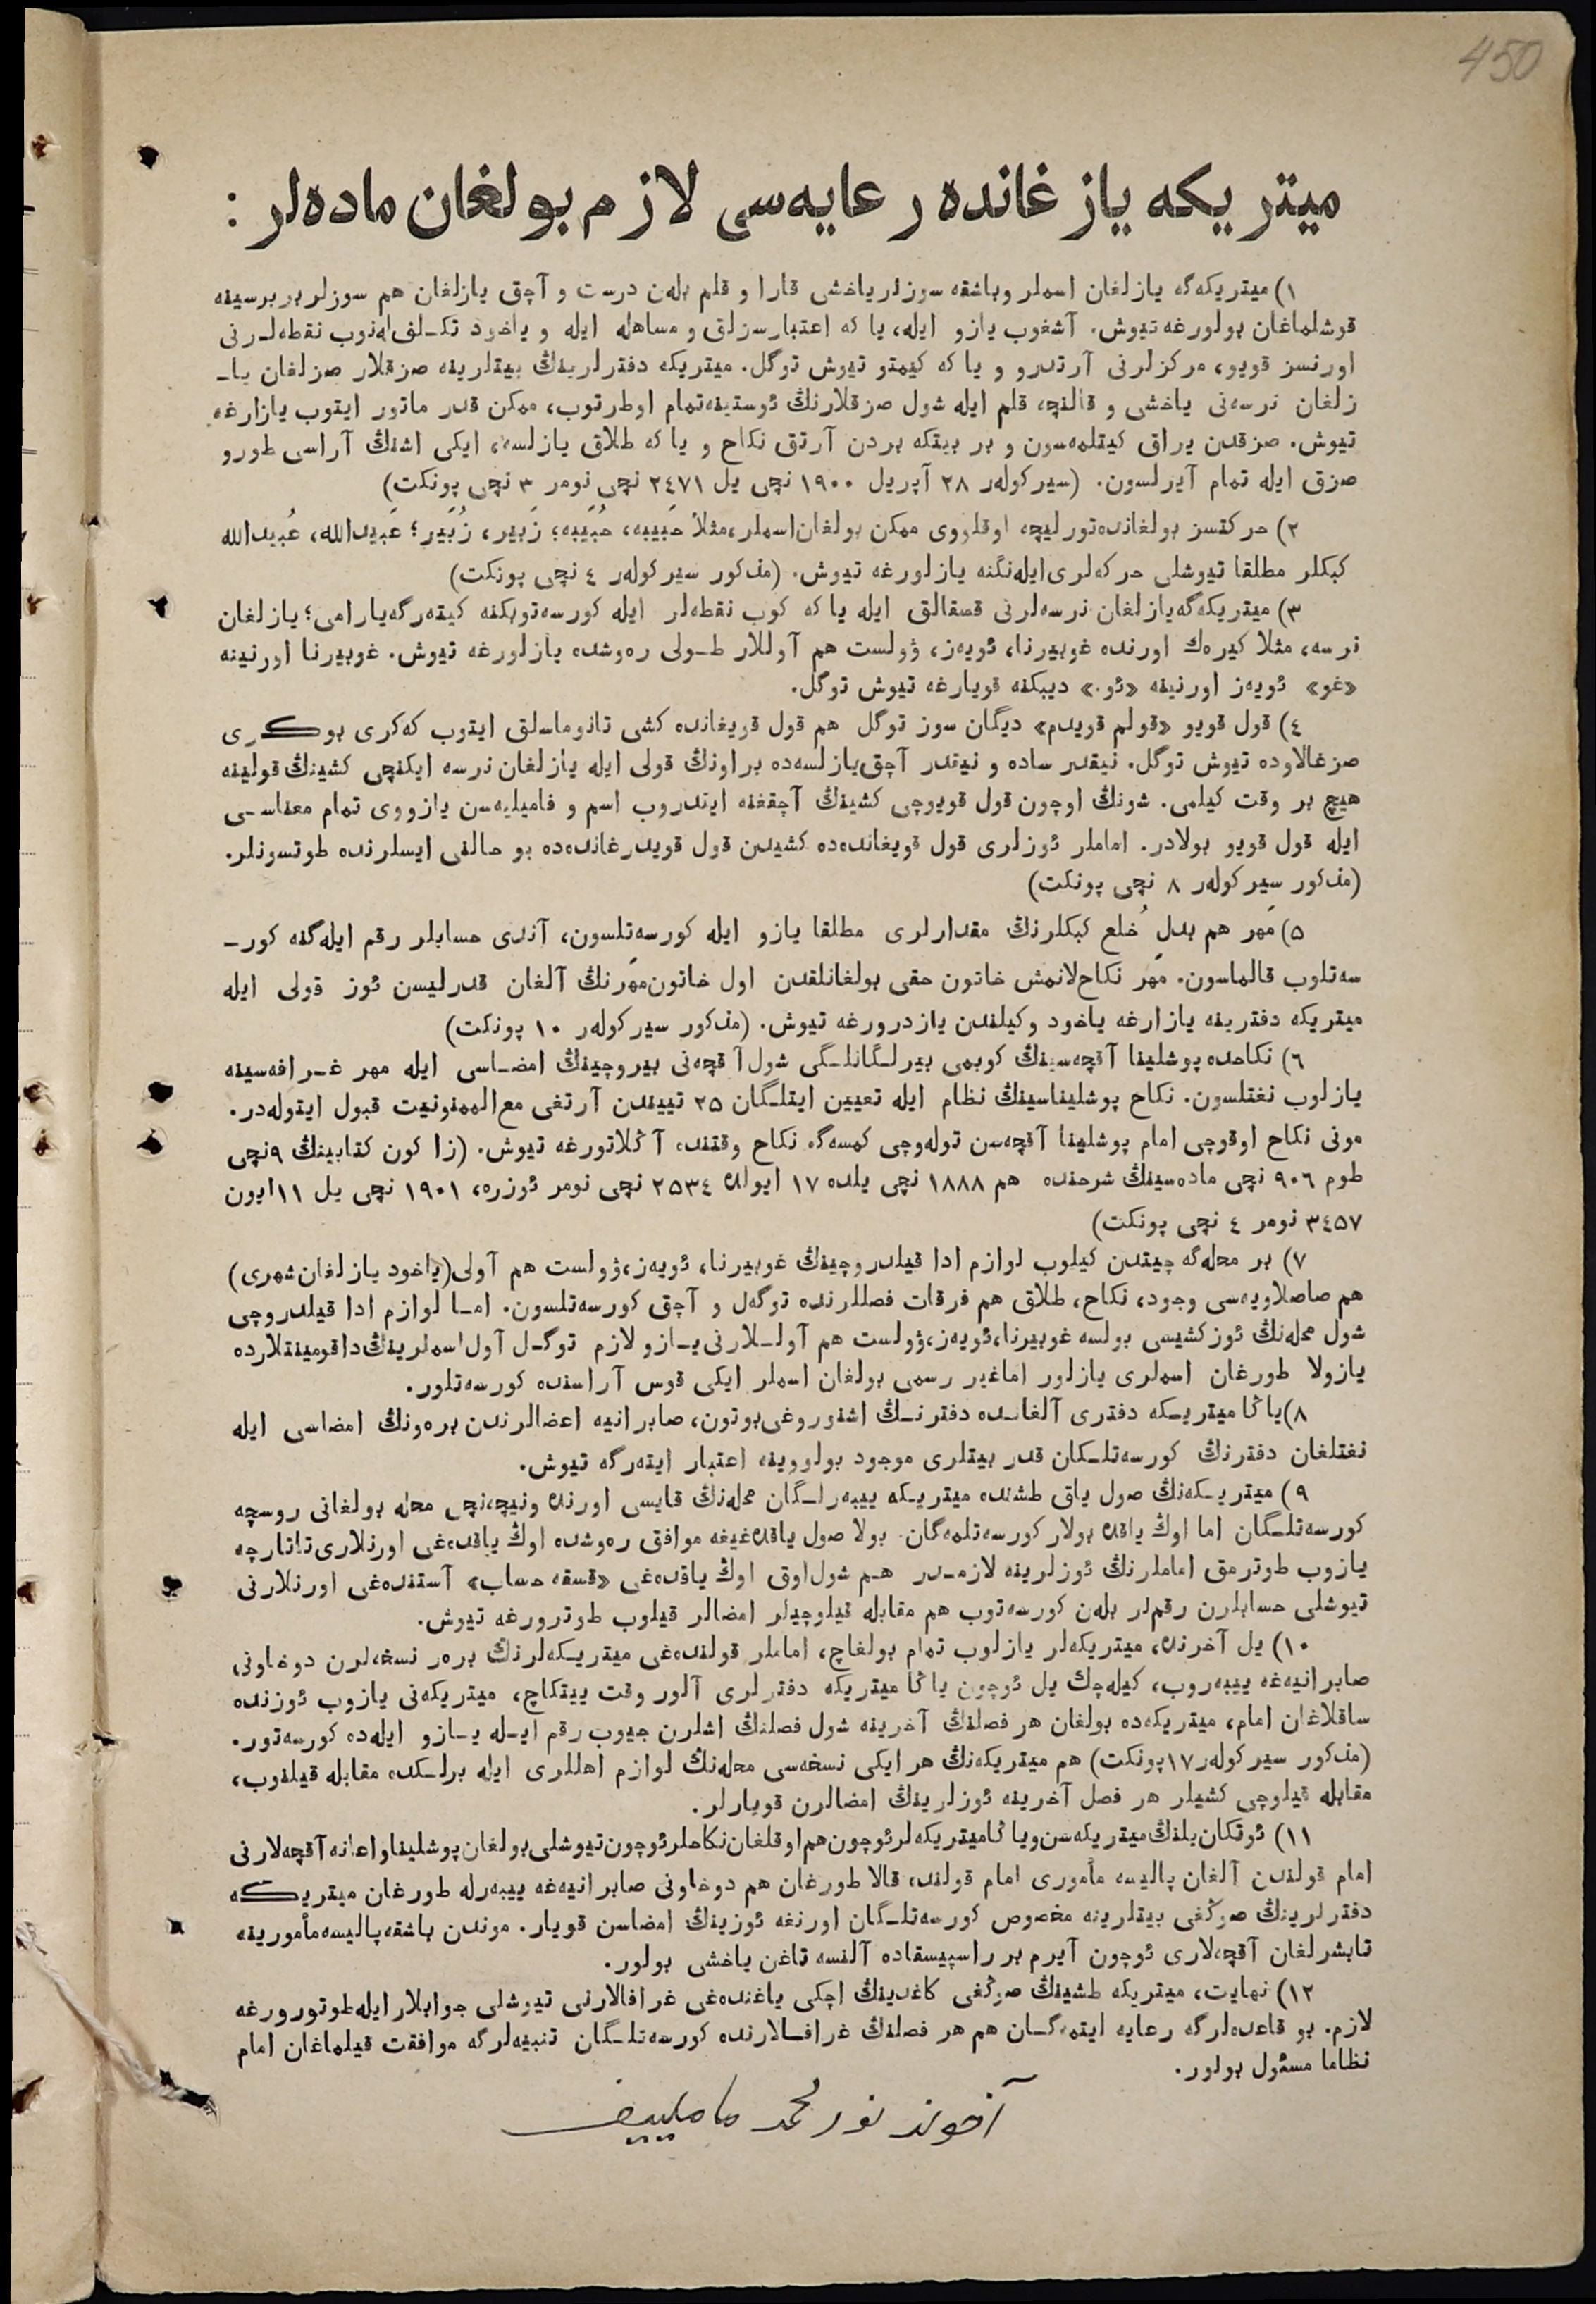 450
ميتريكه يازغانده رعايه‌سى لازم بولغان ماده‌لر :
١) ميتريكه‌گه يازلغان اسملر وباشقه سوزلر ياخشى قارا و قلم بلەن درست و آچق يازلغان هم سوزلر بربرسينه
قوشلماغان بولورغه تيوش. آشغوب يازو ايله، يا كه اعتبارسزلق و مساهله ايله و ياخود تكـلف له‌نوب نقطه‌لـرنى
اورنسز قويو، مركزلرنى آرتدرو و يا كه كيمتو تيوش توگل. ميتريكه دفترلرينڭ بيتلرينه صزقلار صزلغان يا‌ـ
زلغان نرسه‌نى ياخشى و قالنچه قلم ايله شول صزقلارنڭ ئوستينه تمام اوطرتوب، ممكن قدر ماتور ايتوب يازارغه
تيوش. صزقدن يراق كيتلمه‌سون و بر بيتكه بردن آرتق نكاح و يا كه طلاق يازلسه، ايكى اشنڭ آراسى طورو
صزق ايله تمام آيرلسون. (سيركولەر ٢٨ آپريل ١٩٠٠ نچى يل ٢٤٧١ نچى نومر ٣ نچى پونكت)
٢) حركتسز بولغانده تورليچه اوقلووى ممكن بولغان اسملر، مثلاً حَبيبه، حُبَيبه؛ زَبير، زُبَير؛ عَبيدالله، عُبيدالله
كبكلر مطلقا تيوشلى حركه‌لرى ايله‌نگنه يازلورغه تيوش. (مذكور سيركولەر ٤ نچى پونكت)
٣) ميتريكه‌گه يازلغان نرسه‌لرنى قسقالق ايله يا كه كوب نقطه‌لر ايله كورسه‌توبكنه كيته‌رگه يارامى؛ يازلغان
نرسه، مثلا كيرەك اورنده غوبيرنا، ئويەز، ۋولست هم آوللار طـولى رەوشده يازلورغه تيوش. غوبيرنا اورنينه
«غو» ئويەز اورنينه «ئو.» ديبكنه قويارغه تيوش توگل.
٤) قول قويو «قولم قويدم» ديگان سوز توگل هم قول قويغانده كشى تانوماسلق ايتوب كەكرى بوكرى
صزغالاوده تيوش توگل. نيقدر ساده و نيتدر آچق يازلسه‌ده براونڭ قولى ايله يازلغان نرسه ايكنچى كشينڭ قولينه
هيچ بر وقت كيلمى. شونڭ اوچون قول قويوچى كشينڭ آچقغنه ايتدروب اسم و فاميليەسن يازووى تمام معناسـى
ايله قول قويو بولادر. اماملر ئوزلرى قول قويغانده‌ده كشيدن قول قويدرغانده‌ده بو حالنى ايسلرنده طوتسونلر.
(مذكور سيركولەر ٨ نچى پونكت)
٥) مَهر هم بدلِ خُلع كبكلرنڭ مقدارلرى مطلقا يازو ايله كورسه‌تلسون، آندى حسابلر رقم ايله‌گنه كورـ
سه‌تلوب قالماسون. مَهر نكاح‌لانمش خاتون حقى بولغانلقدن اول خاتون مَهرنڭ آلغان قدرليسن ئوز قولى ايله
ميتريكه دفترينه يازارغه ياخود وكيلندن يازدرورغه تيوش. (مذكور سيركولەر ١٠ پونكت)
٦) نكاحده پوشلينا آقچه‌سينڭ كوبمى بيرلـگانلـگى شول آقچه‌نى بيروچينڭ امضـاسى ايله مهر غـرافه‌سينه
يازلوب نغتلسون. نكاح پوشليناسينڭ نظام ايله تعيين ايتلـگان ٢٥ تييندن آرتغى مع‌الممنونيت قبول ايتوله‌در.
مونى نكاح اوقوچى امام پوشلينا آقچه‌سن توله‌وچى كمسه‌گه نكاح وقتنده آڭلاتورغه تيوش. (زاكون كتابينڭ ٩نچى
طوم ٩٠٦ نچى ماده‌سينڭ شرحنده هم ١٨٨٨ نچى يلده ١٧ ايولده ٢٥٣٤ نچى نومر ئوزره، ١٩٠١ نچى يل ١١ ايون
٣٤٥٧ نومر ٤ نچى پونكت)
٧) بر محله‌گه چيتدن كيلوب لوازم ادا قيلدروچينڭ غوبيرنا، ئويەز، ۋولست هم آولى (ياخود يازلغان شهرى)
هم صاصلاويەسى وجود، نكاح، طلاق هم فرقات فصللرنده توگەل و آچق كورسه‌تلسون. امـا لوازم ادا قيلدروچى
شول محله‌نڭ ئوز كشيسى بولسه غوبيرنا، ئويەز، ۋولست هم آولـلارنى يـازو لازم توگـل آول اسملرينڭ داقومينتلارده
يازولا طورغان اسملرى يازلور اما غير رسمى بولغان اسملر ايكى قوس آراسنده كورسه‌تلور.
٨) ياڭا ميتريـكه دفترى آلغاـنده دفترنـڭ اشنوروغى بوتون، صابرانيه اعضالرندن بره‌ونڭ امضاسى ايله
نغتلغان دفترنڭ كورسه‌تلـگان قدر بيتلرى موجود بولووينه اعتبار ايته‌رگه تيوش.
٩) ميتريـكه‌نڭ صول ياق طشنده ميتريـكه ييبه‌رلـگان محله‌نڭ قايسى اورنده ونيچه‌نچى محله بولغانى روسچه
كورسه‌تلـگان اما اوڭ ياقده بولار كورسه‌تلمه‌گان. بولا صول ياقده‌غيغه موافق رەوشده اوڭ ياقده‌غى اورنلارى تاتارچه
يازوب طوترمق اماملرنڭ ئوزلرينه لازمـدر هـم شول‌اوق اوڭ ياقده‌غى «قسقه حساب» آستنده‌غى اورنلارنى
تيوشلى حسابلرن رقم‌لر بلەن كورسه‌توب هم مقابله قيلوچيلر امضالر قيلوب طوترورغه تيوش.
١٠) يل آخرنده، ميتريكه‌لر يازلوب تمام بولغاچ، اماملر قولنده‌غى ميتريـكه‌لرنڭ بره‌ر نسخه‌لرن دوخاونى
صابرانيه‌غه ييبه‌روب، كيله‌چك يل ئوچون ياڭا ميتريكه دفترلرى آلور وقت ييتكاچ، ميتريكه‌نى يازوب ئوزنده
ساقلاغان امام، ميتريكه‌ده بولغان هر فصلنڭ آخرينه شول فصلنڭ اشلرن جيوب رقم ايـله يـازو ايله‌ده كورسه‌تور.
(مذكور سيركولەر ١٧ پونكت) هم ميتريكه‌نڭ هر ايكى نسخه‌سى محله‌نڭ لوازم اهللرى ايله برلـكده مقابله قيلنوب،
مقابله قيلوچى كشيلر هر فصل آخرينه ئوزلرينڭ امضالرن قويارلر.
١١) ئوتكان يلنڭ ميتريكه‌سن ويا ياڭا ميتريكه‌لر ئوچون هم اوقلغان نكاحلر ئوچون تيوشلى بولغان پوشلينا و اعانه آقچه‌لارنى
امام قولندن آلغان پاليسه مأمورى امام قولنده قالا طورغان هم دوخاونى صابرانيه‌غه ييبه‌رله طورغان ميتريكه
دفترلرينڭ صوڭغى بيتلرينه مخصوص كورسه‌تلـگان اورنغه ئوزينڭ امضاسن قويار. موندن باشقه پاليسه مأمورينه
تابشرلغان آقچه‌لارى ئوچون آيرم بر راسپيسقاده آلنسه تاغن ياخشى بولور.
١٢) نهايت، ميتريكه طشينڭ صوڭغى كاغدينڭ اچكى ياغنده‌غى غرافالارنى تيوشلى جوابلار ايله طوتورورغه
لازم. بو قاعده‌لرگه رعايه ايتمه‌گـان هم هر فصلنڭ غرافـالارنده كورسه‌تلـگان تنبيه‌لرگه موافقت قيلماغان امام
نظاما مسئول بولور.
آخوند نور محمد ماملييف